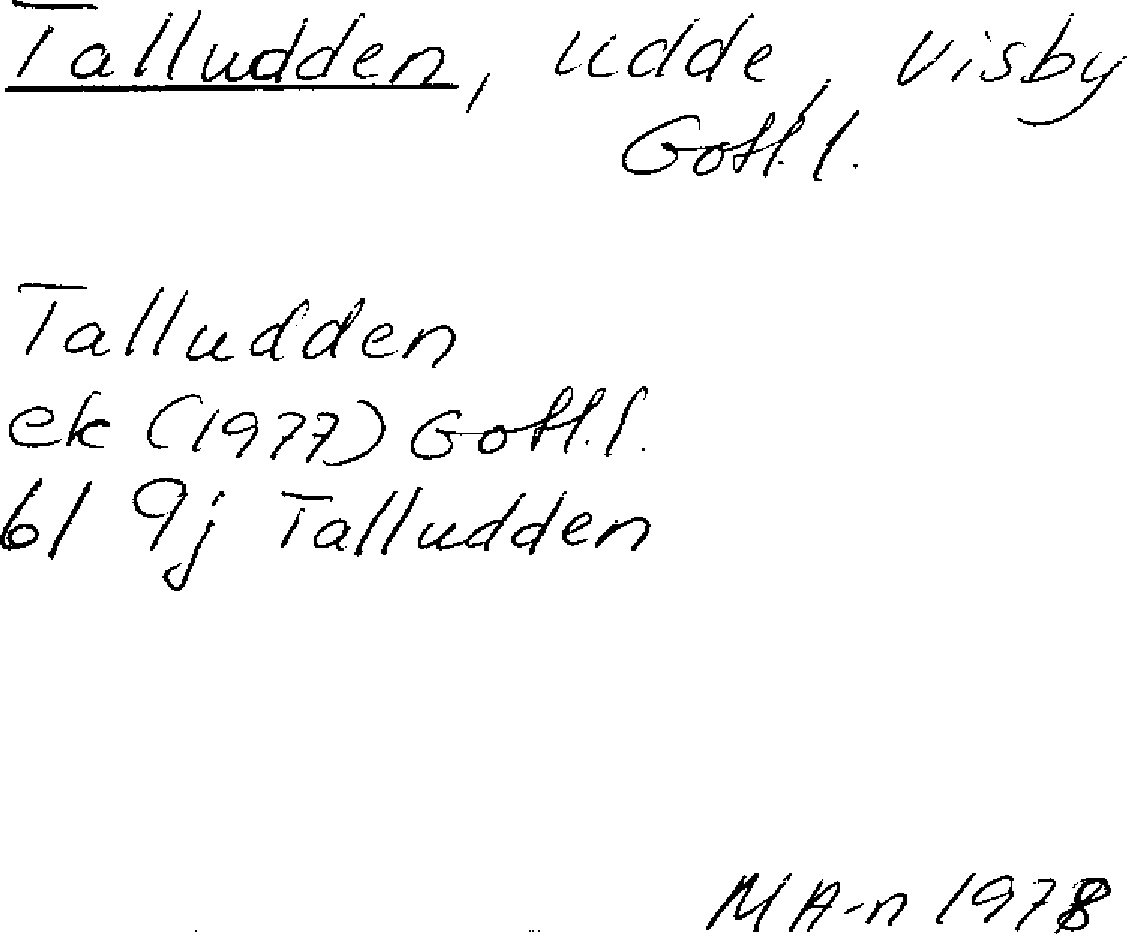 Talludden, udde, Visby
Gotl. l.
Talludden
ek (1977) Gotl. l.
6I 9j Talludden
MA-n 1978